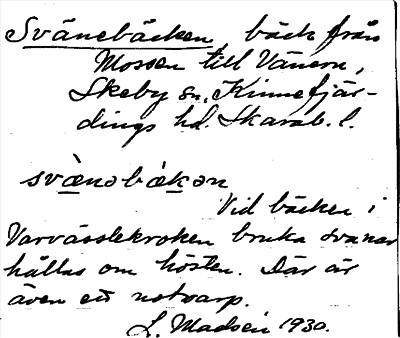 Svänebäcken, bäck från
Mossen till Vänern,
Skeby sn, Kinnefjär-
dings hd. Skarab. l.
svènəbækən
Vid bäcken i
Varvásslekroken bruka svanar
hållas om hösten. Där är
även ett notvarp.
L. Madsén 1930.